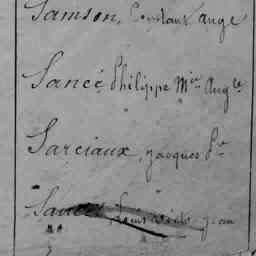 Samson, Constant ange
Sancé Philippe M.ie Aug.te
Sarciaux, Jacques P.re
Jean